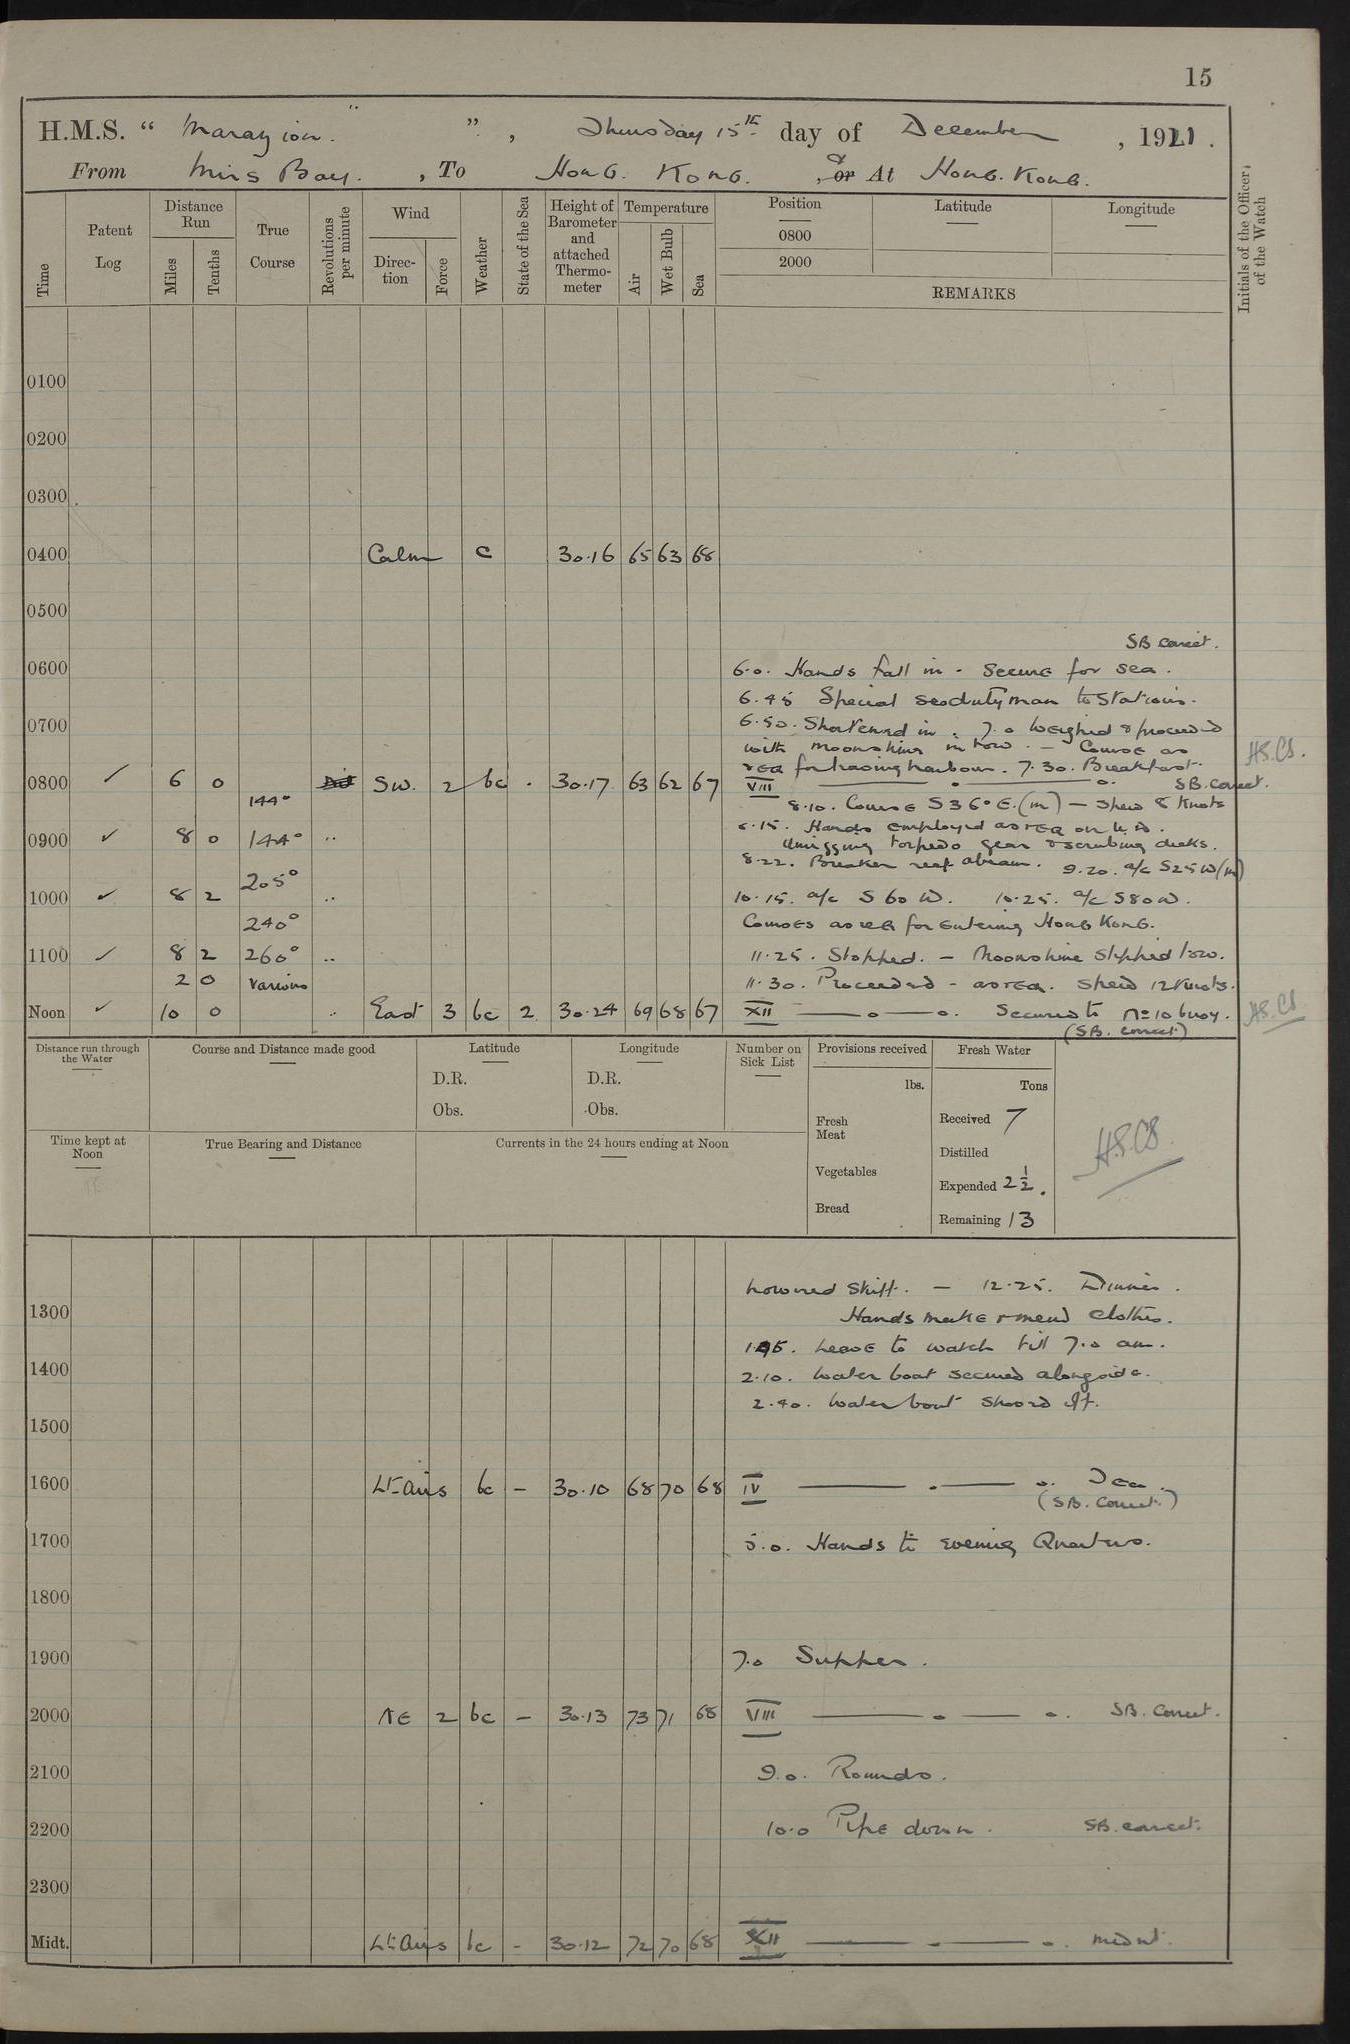 15
H.M.S. " Marazion " , Thursday 15th day of December , 1921 .
From Mirs Bay. , To Hong Kong. , & or At Hong. Kong.
Time Patent Log Distance Run Miles Tenths True Course Revolutions per minute Wind Direc-tion Force Weather State of the Sea Height of Barometer and attached Thermo-meter Temperature Air Wet Bulb Sea Position Latitude Longitude
0800
2000
REMARKS
Initials of the Officer, of the Watch
0100
0200
0300
0400 Calm c 30.16 65 63 68
0500
SB correct.
0600 6.0. Hands fall in. Secure for sea.
6.45 Special seadutyman to stations.
0700 6.50. Shortened in. 7.0 Weighed & proceeded
with Moonshine in tow. — Course as
req for leaving harbour. 7.30. Breakfast.
H.S.CS.
0800 ✓ 6 0 SW. 2 bc - 30.17 63 62 67 VIII SB. correct.
144° 8.10. Course S36°E.(m) — Speed 8 Knots
8.15. Hands employed as req on
0900 ✓ 8 0 144° " unrigging torpedo gear & scrubbing decks.
8.22. Breaker reef abeam. 9.20. a/c S25W(m)
205°
1000 ✓ 8 2 " 10.15. a/c S60W. 10.25. a/c S80W.
240° Courses as req for entering Hong Kong.
1100 ✓ 8 2 260° " 11.25. Stopped. — Moonshine slipped tow.
2 0 various 11.30. Proceeded - as req. Speed 12 Knots.
Noon ✓ 10 0 " East 3 bc 2 30.24 69 68 67 XII Secured to No 10 buoy.
(SB. correct)
H.S.CS
Distance run through the Water Course and Distance made good Latitude Longitude Number on Sick List Provisions received Fresh Water
D.R. D.R. lbs. Tons
Obs. Obs. Fresh Meat Received 7
Time kept at Noon True Bearing and Distance Currents in the 24 hours ending at Noon Distilled
Vegetables Expended 2½.
Bread Remaining 13
H.S.CS
Lowered skiff. — 12.25. Dinner.
1300 Hands make & mend clothes.
Leave to watch till 7.0 am.
1400 2.10. Water boat secured alongside.
2.40. Water boat shoved off.
1500
1600 Lt-airs bc - 30.10 68 70 68 IV Tea.
(SB. Correct.)
1700 5.0. Hands to evening Quarters.
1800
1900 7.0 Supper.
2000 NE 2 bc - 30.13 73 71 68 VIII SB. Correct.
2100 9.0. Rounds.
2200 10.0 Pipe down. SB. correct.
2300
Midt. Lt-airs bc - 30.12 72 70 68 XII midnt.